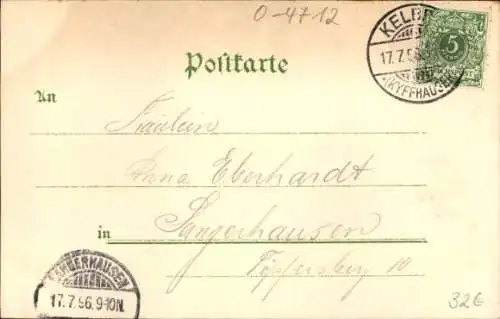 O-4712
KELBR
17.7.96
(KYFFHÄUSER)
5
Postkarte
An
Fräulein
Anna Eberhardt
in Sangerhausen
Töpfersberg 10
SANGERHAUSEN
17.7.96.9-10N.
32€